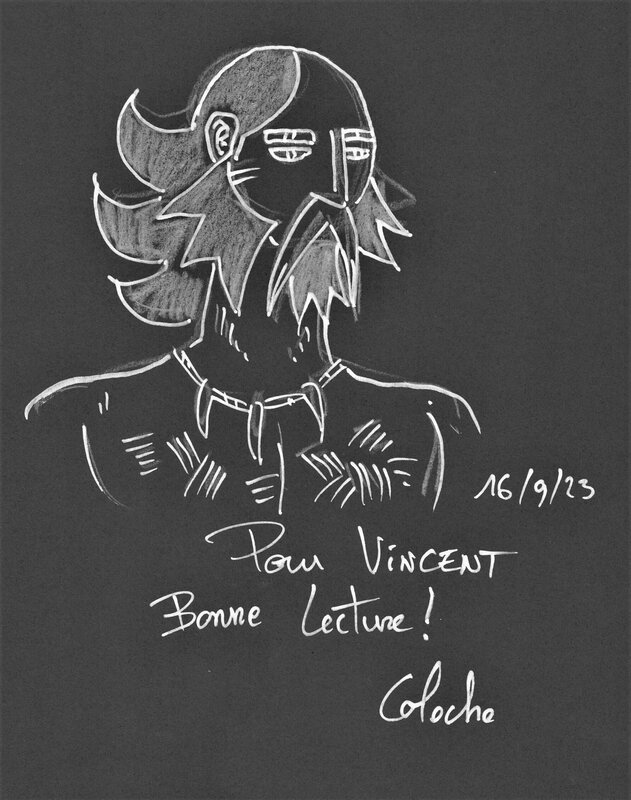 16/9/23
Pour VINCENT
Bonne Lecture !
Coloche